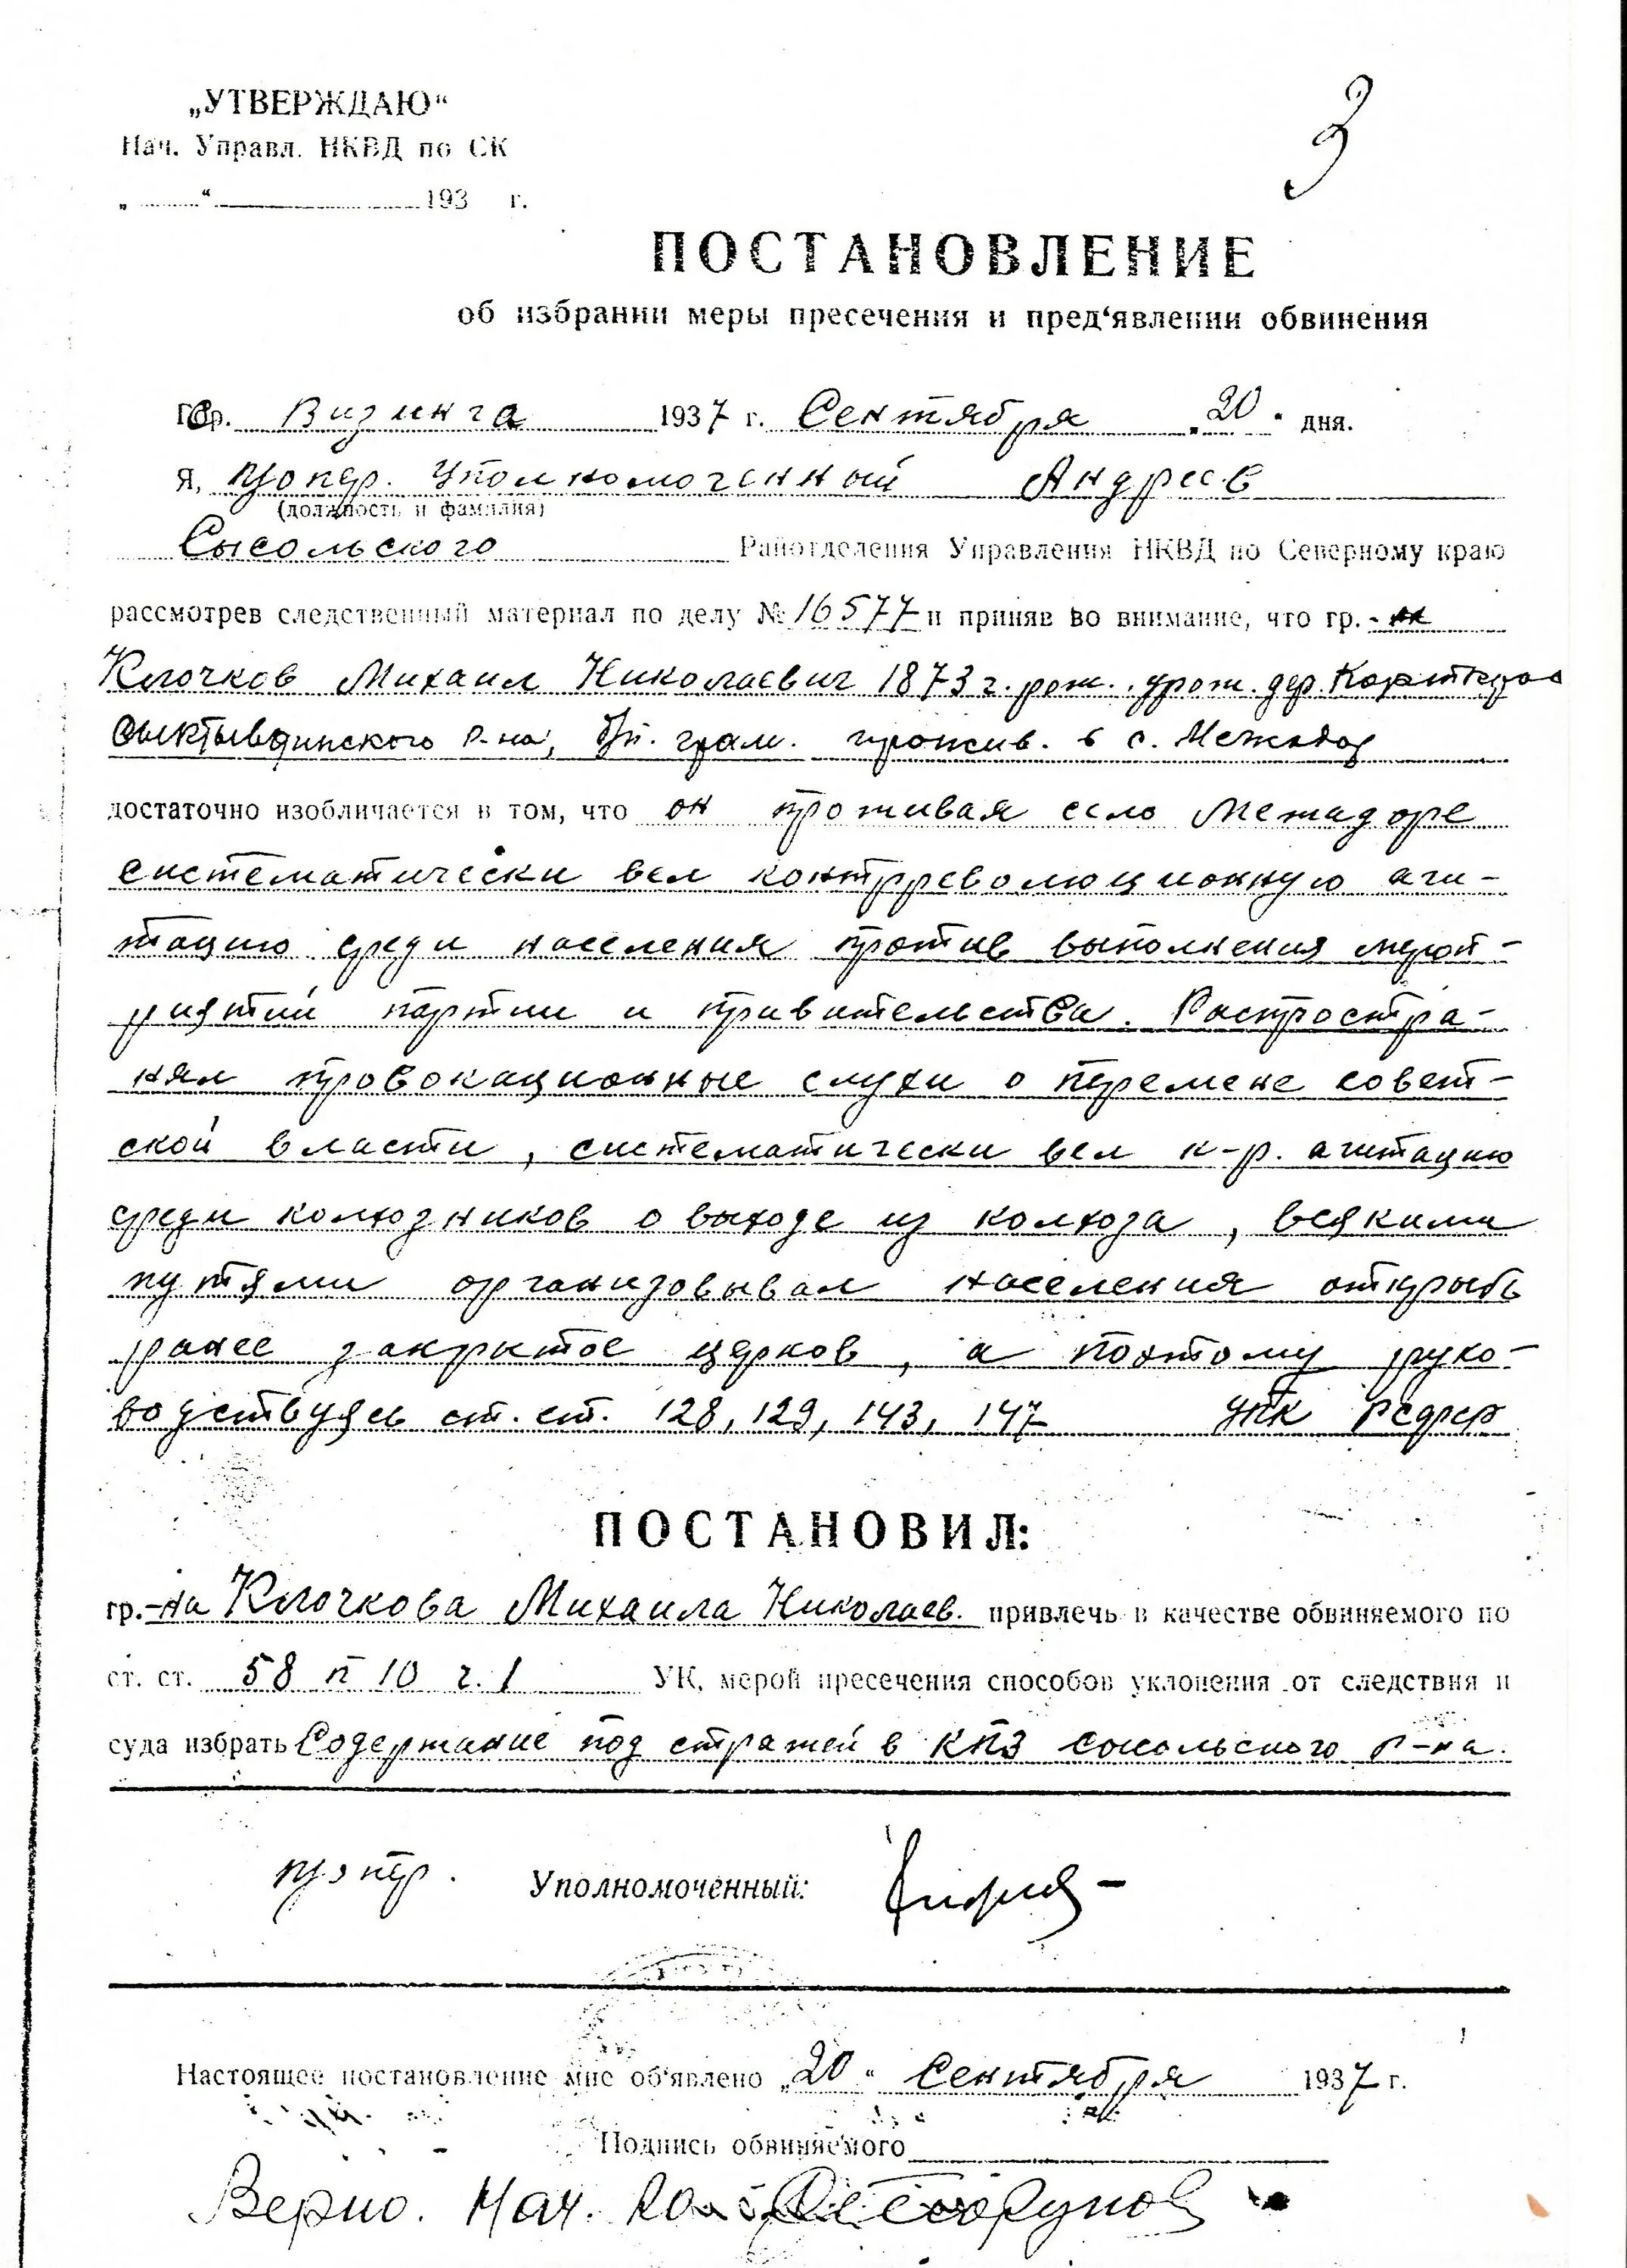 „УТВЕРЖДАЮ“
3
Нач. Управл. НКВД по СК
„ “ 193 г.
ПОСТАНОВЛЕНИЕ
об избрании меры пресечения и пред‘явлении обвинения
Визинга 1937 г. Сентября „20“ дня.
Я, Уполномоченный Андреев
(должность и фамилия)
Сысольского Райотделения Управления НКВД по Северному краю
рассмотрев следственный материал по делу № 16577 и приняв во внимание, что гр.-
Клочков Михаил Николаевич 1873 г. рож. урож. дер.
Сыктывдинского р-на, грам. прожив. в с. Межадор
достаточно изобличается в том, что он проживая село Межадоре
систематически вел контрреволюционную аги-
тацию среди населения против выполнения мероп-
риятий партии и правительства. Распростра-
нял провокационные слухи о перемене совет-
ской власти, систематически вел к-р. агитацию
среди колхозников о выходе из колхоза, всякими
путями организовывал населения открыть
ранее закрытое церков, а поэтому руко-
водствуясь ст. ст. 128, 129, 143, 147 УПК РСФСР
ПОСТАНОВИЛ:
гр.-на Клочкова Михаила Николаев. привлечь в качестве обвиняемого по
ст. ст. 58 п 10 ч. 1 УК, мерой пресечения способов уклонения от следствия и
суда избрать Содержание под стражей в КПЗ сысольского р-на.
Уполномоченный:
Настоящее постановление мне об‘явлено „20“ Сентября 1937 г.
Подпись обвиняемого
Верно. Нач.